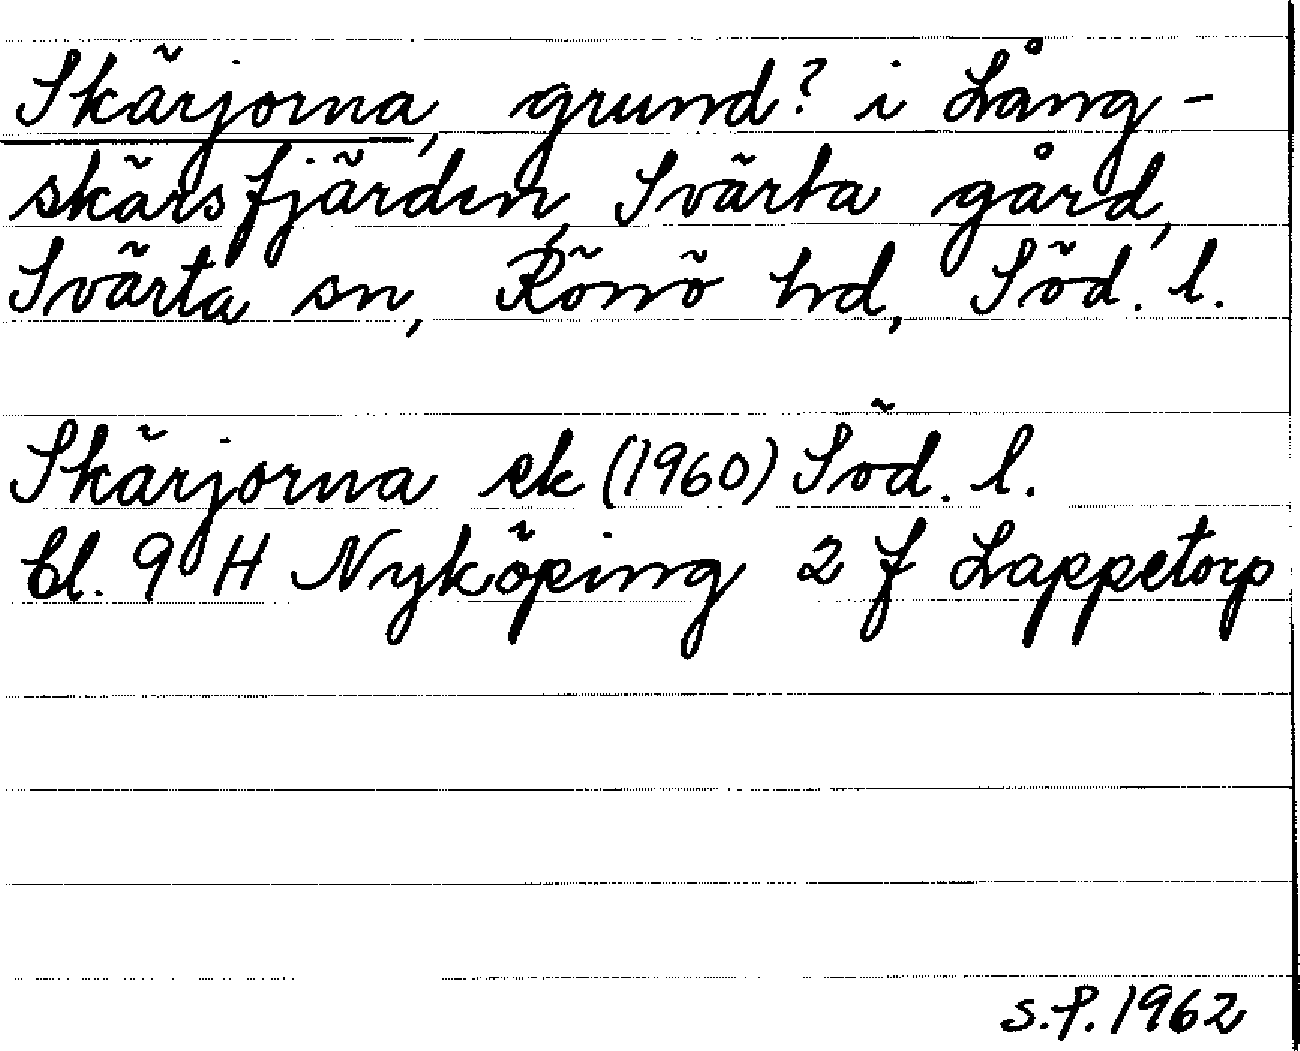 Skärjorna, grund? i Lång-
skärsfjärden, Svärta gård,
Svärta sn, Rönö hd, Söd. l.
Skärjorna ek (1960) Söd. l.
bl. 9 H Nyköping 2 f Lappetorp
S.P. 1962